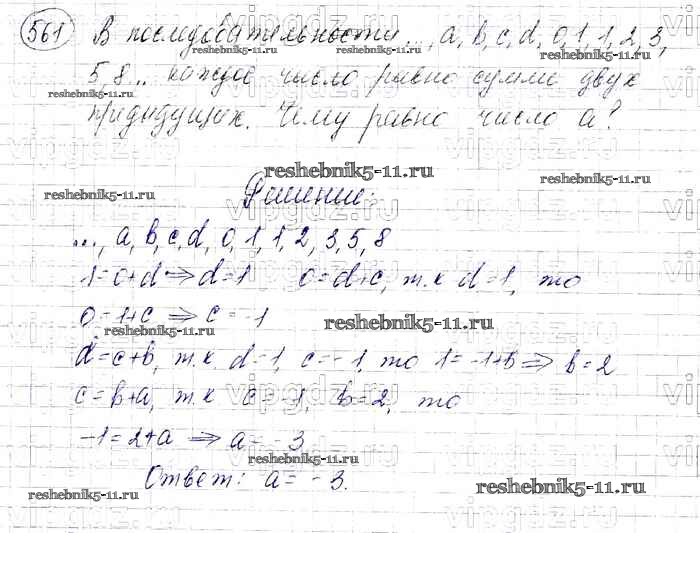 561 В последовательности ..., a, b, c, d, 0, 1, 1, 2, 3,
5, 8.. каждое число равно сумме двух
предыдущих. Чему равно число a?
Решение:
..., a, b, c, d, 0, 1, 1, 2, 3, 5, 8
1=0+d ⇒ d=1 0=d+c, т.к d=1, то
0=1+c ⇒ c=-1
d=c+b, т.к. d=1, c=-1, то 1=-1+b ⇒ b=2
c=b+a, т.к c=-1, b=2, то
-1=2+a ⇒ a=-3
Ответ: a=-3.
reshebnik5-11.ru
vipgdz.ru